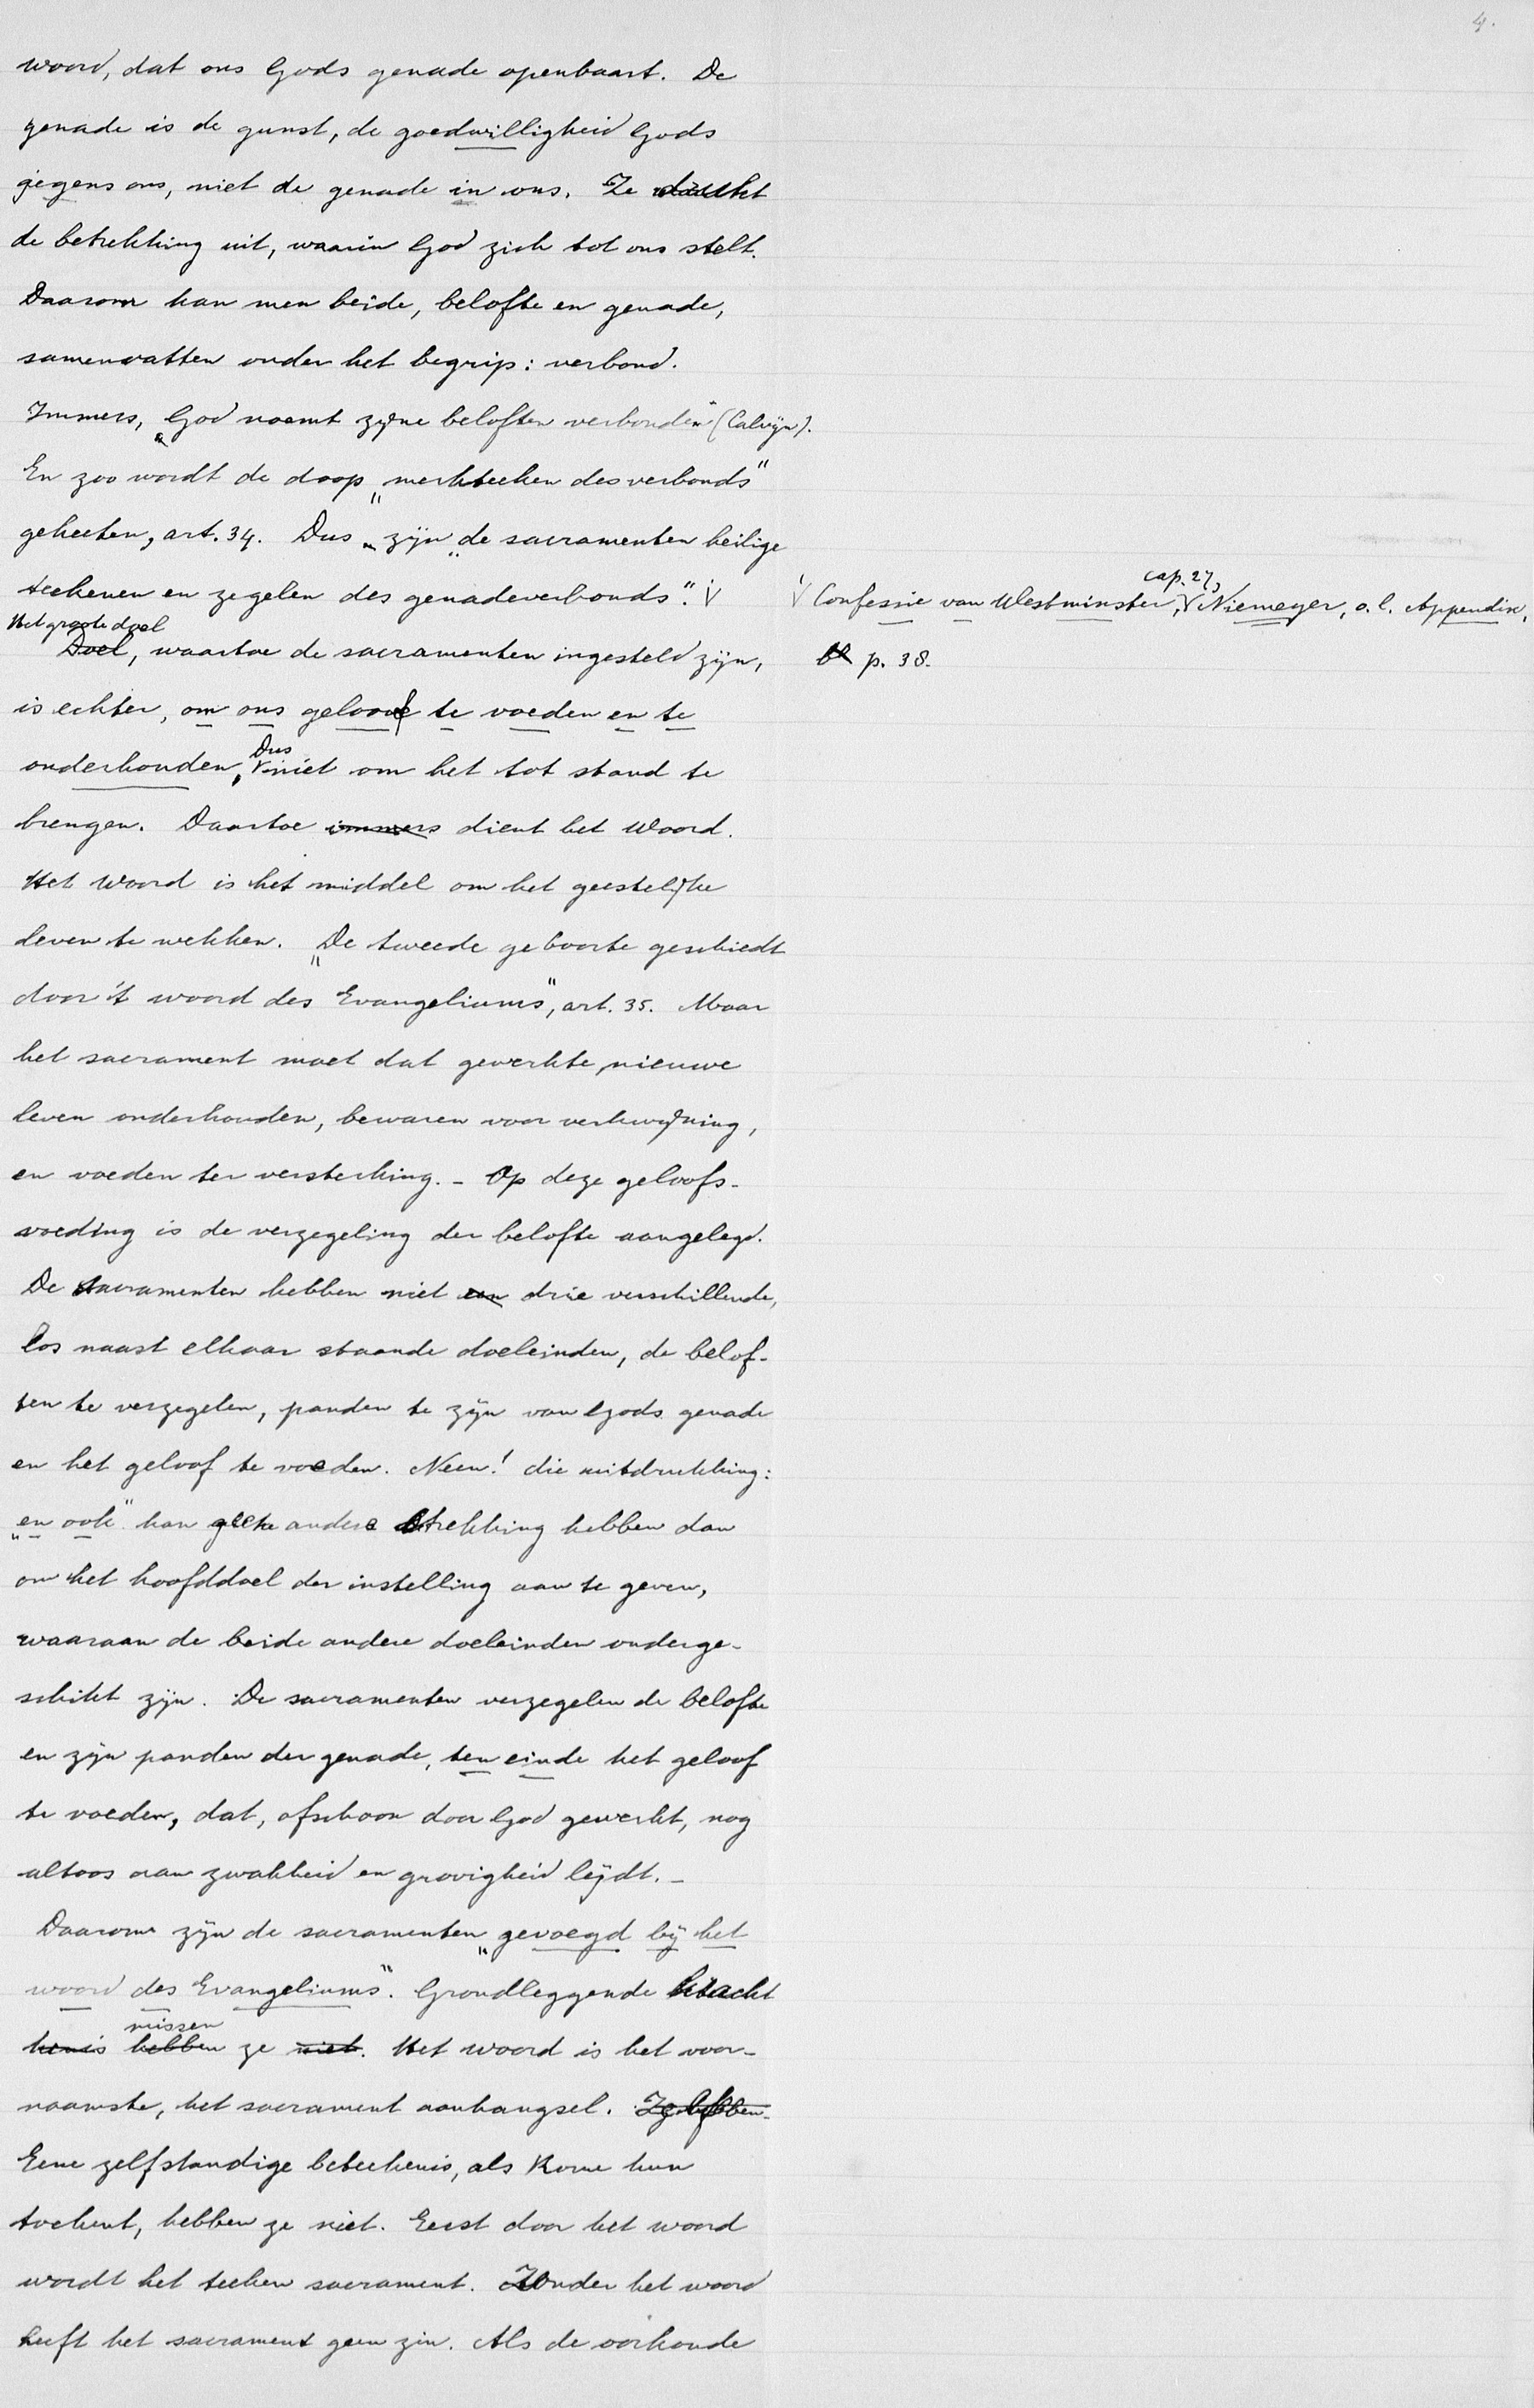 4.
woord, dat ons Gods genade openbaart. De
genade is de gunst, de goedwilligheid Gods
jegens ons, niet de genade in ons. Ze drukt
de betrekking uit, waarin God zich tot ons stelt.
Daarom kan men beide, belofte en genade,
samenvatten onder het begrip: verbond.
Immers, „God noemt zijne beloften verbonden" (Calvijn).
En zoo wordt de doop „merkteeken des verbonds"
geheeten, art. 34. Dus „zijn de sacramenten heilige
teekenen en zegelen des genadeverbonds". √
cap. 27,
√ Confessie van Westminster, √ Niemeyer, o.l. Appendix,
p. 38.
Het groote doel
Doel, waartoe de sacramenten ingesteld zijn,
is echter, om ons geloof te voeden en te
Dus
onderhouden, √ niet om het tot stand te
brengen. Daartoe immers dient het Woord.
Het Woord is het middel om het geestelijke
leven te wekken. „De tweede geboorte geschiedt
door 't woord des Evangeliums", art. 35. Maar
het sacrament moet dat gewerkte, nieuwe
leven onderhouden, bewaren voor verkwijning,
en voeden ter versterking. – Op deze geloofs-
voeding is de verzegeling der belofte aangelegd.
De sacramenten hebben niet een drie verschillende,
los naast elkaar staande doeleinden, de belof-
ten te verzegelen, panden te zijn van Gods genade
en het geloof te voeden. Neen! die uitdrukking:
„en ook" kan geene andere strekking hebben dan
om het hoofddoel der instelling aan te geven,
waaraan de beide andere doeleinden onderge-
schikt zijn. De sacramenten verzegelen de belofte
en zijn panden der genade, ten einde het geloof
te voeden, dat, ofschoon door God gewerkt, nog
altoos aan zwakheid en grovigheid lijdt. –
Daarom zijn de sacramenten „gevoegd bij het
woord des Evangeliums". Grondleggende kracht
missen
kenis hebben ze niet. Het woord is het voor-
naamste, het sacrament aanhangsel. Ze hebben
Eene zelfstandige beteekenis, als Rome hun
toekent, hebben ze niet. Eerst door het woord
wordt het teeken sacrament. Zonder het woord
heeft het sacrament geen zin. Als de oorkonde